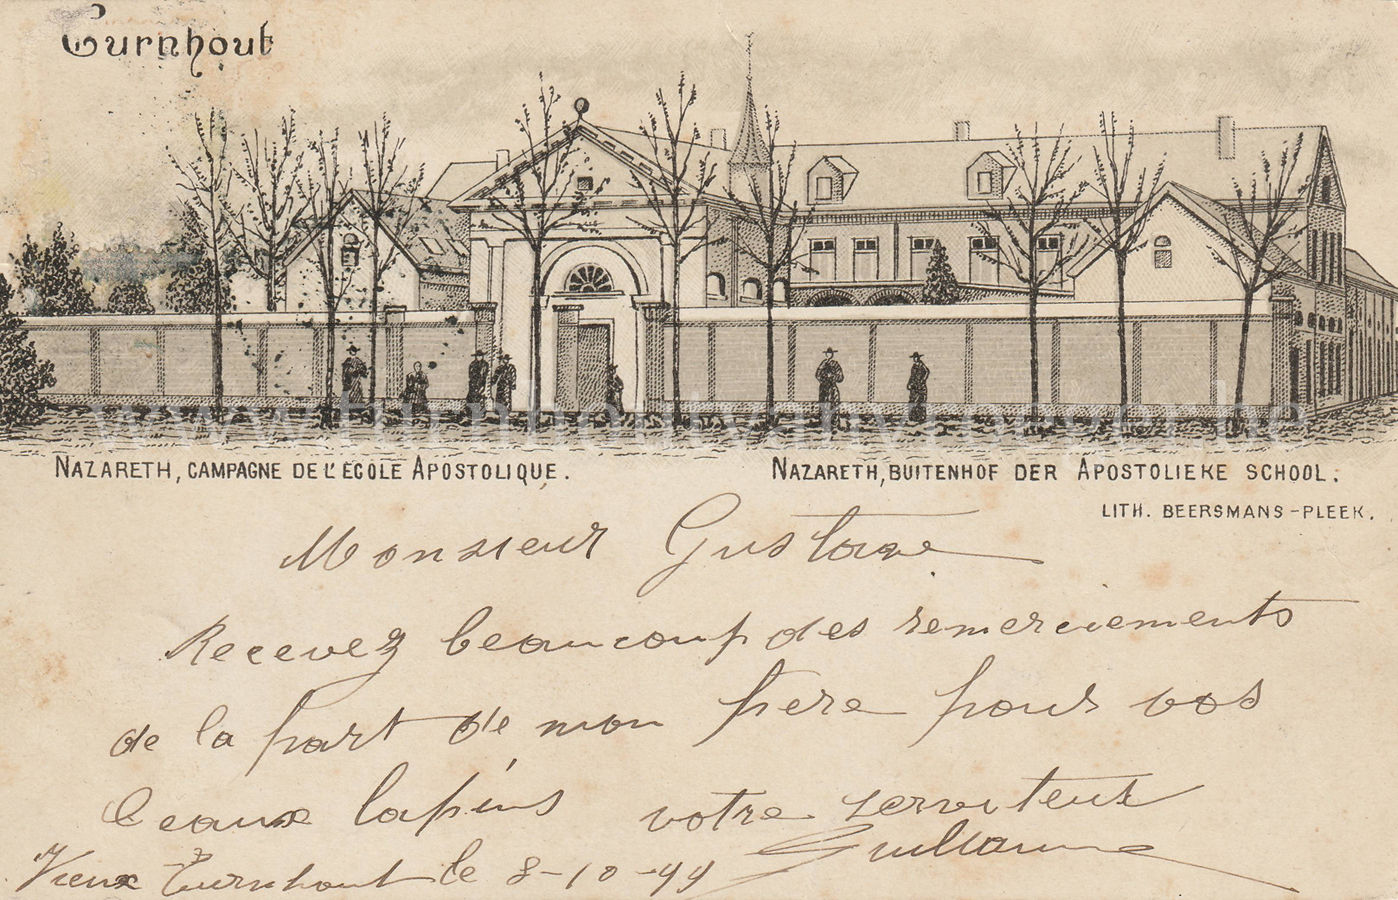 Turnhout
www.turnhoutvanvroeger.be
NAZARETH, CAMPAGNE DE L'ÉCOLE APOSTOLIQUE.
NAZARETH, BUITENHOF DER APOSTOLIEKE SCHOOL.
LITH. BEERSMANS-PLEEK.
Monsieur Gustave
Recevez beaucoup des remerciements
de la part de mon frere pour vos
beaux lapins votre serviteur
Guillaume
Vieux Turnhout le 8-10-99